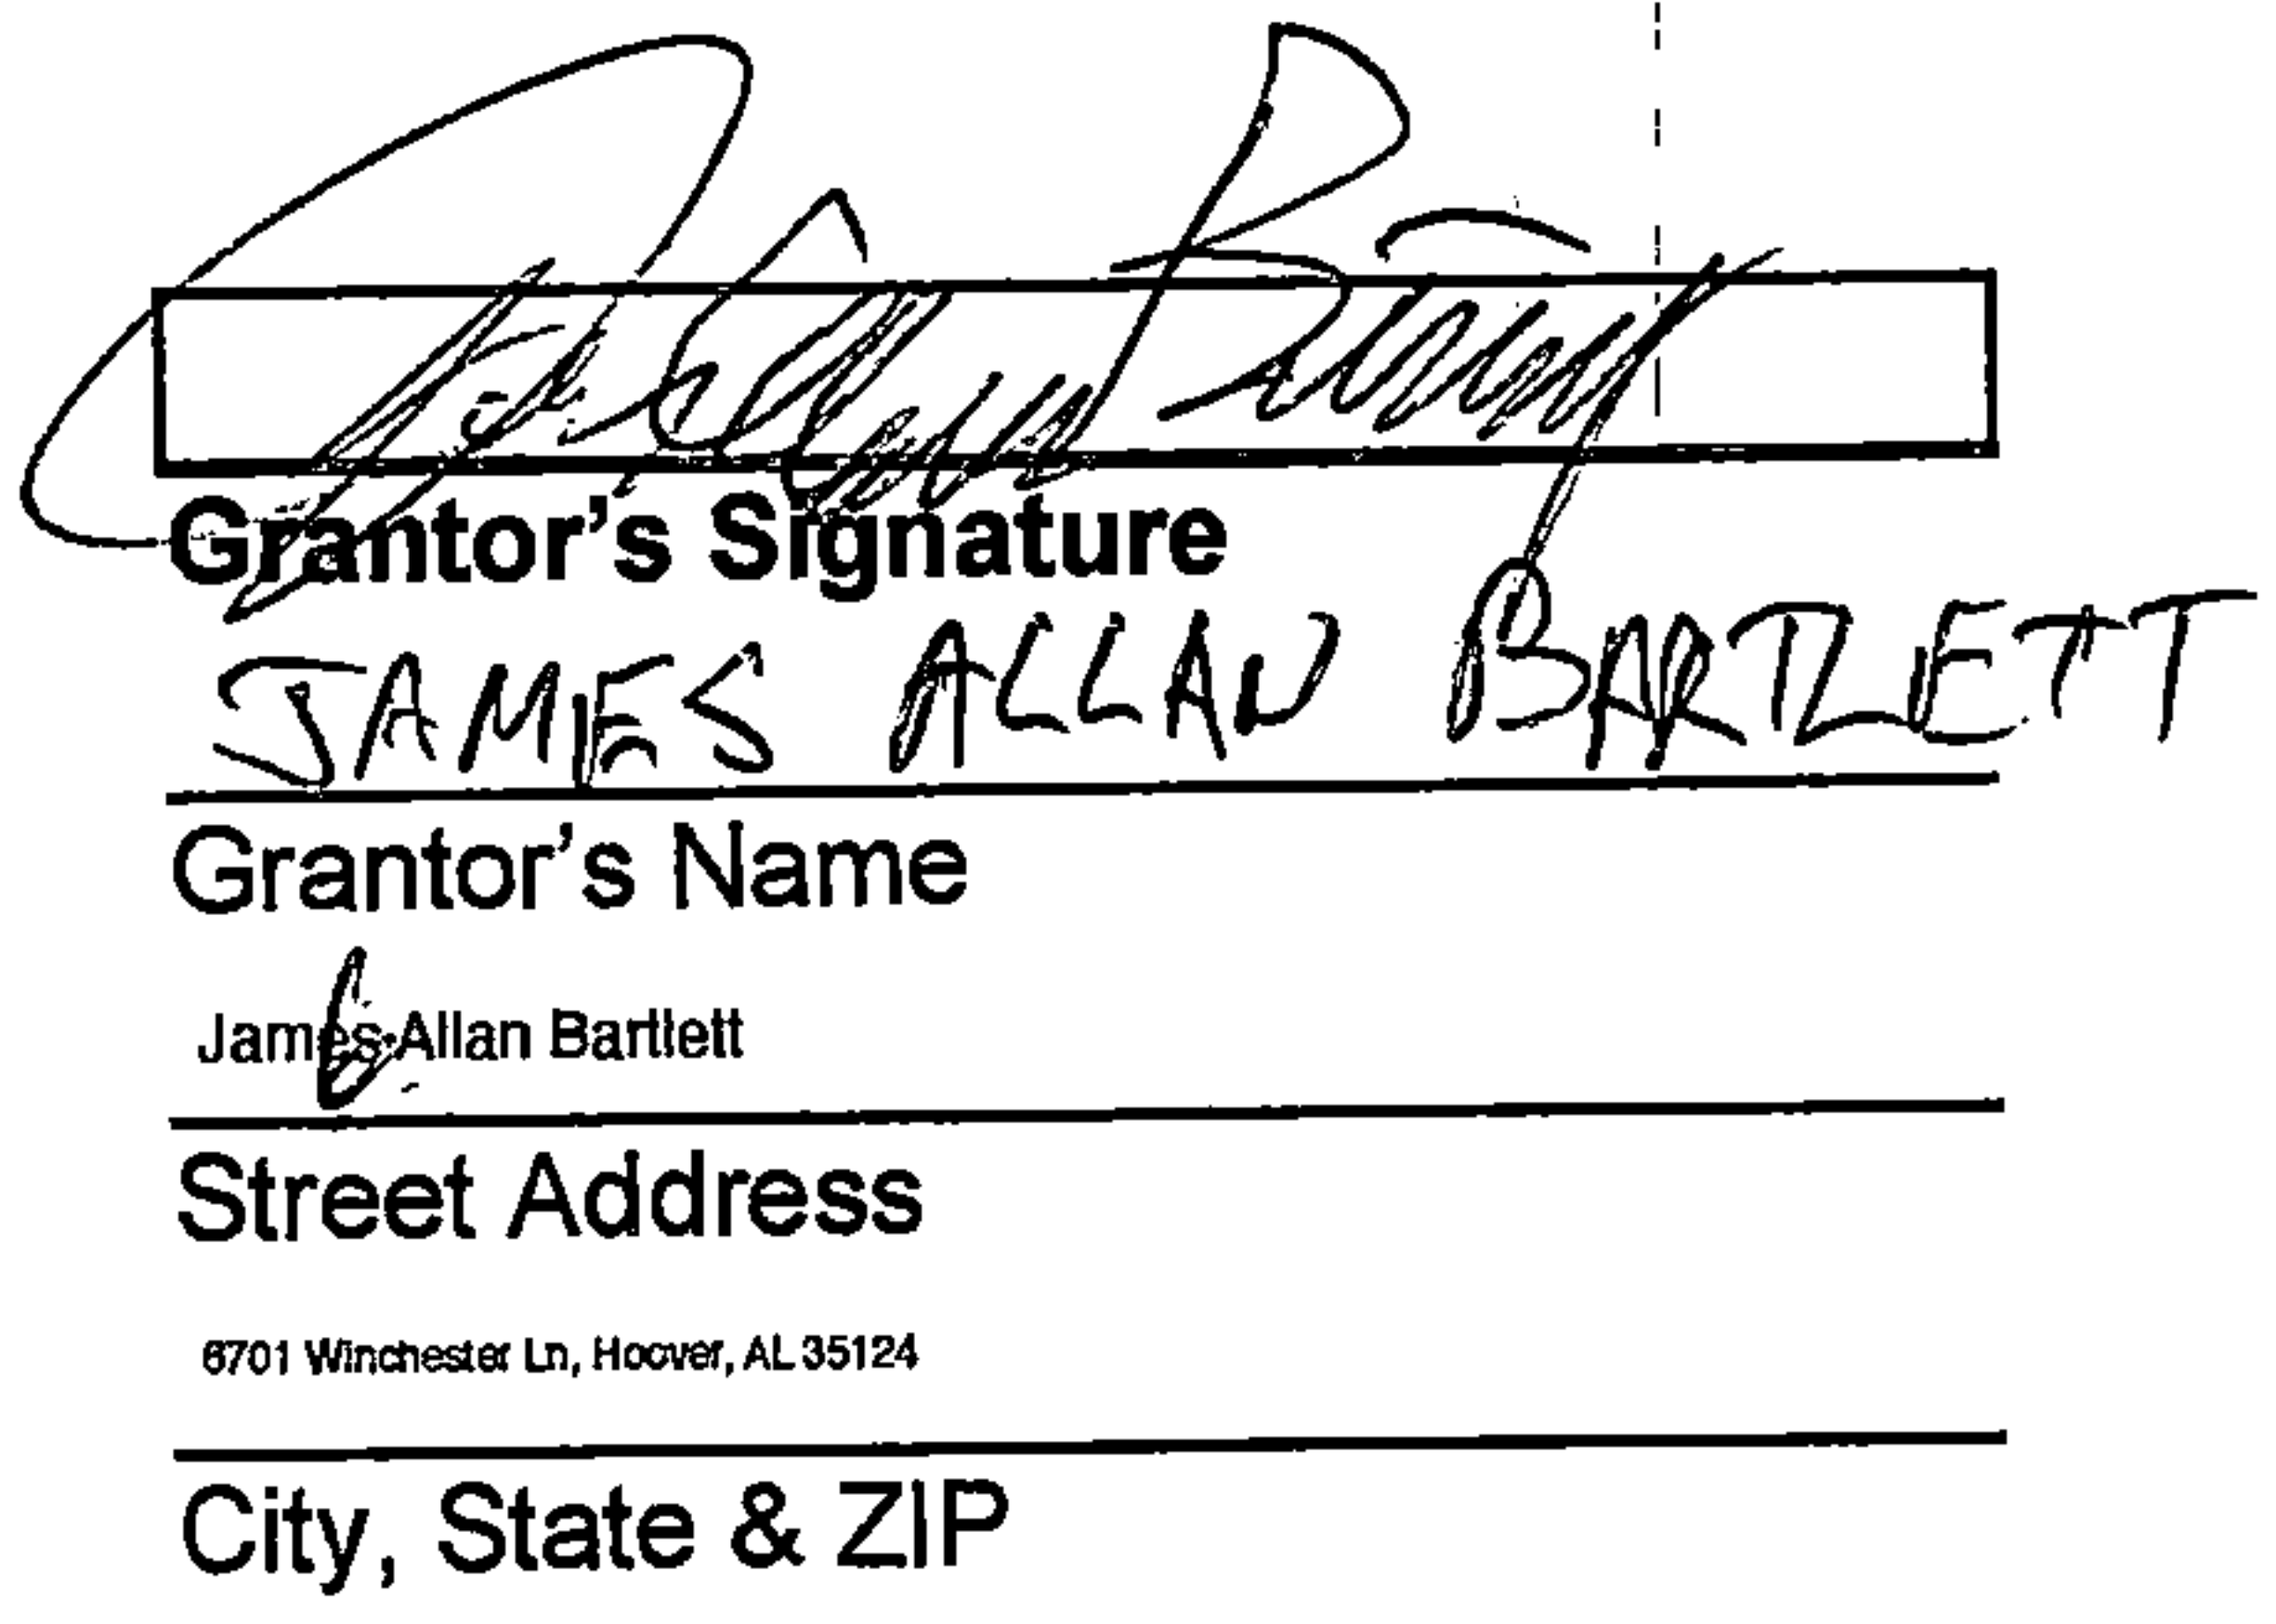 Grantor's Signature
JAMES ALLAN BARTLETT
Grantor's Name
James Allan Bartlett
Street Address
6701 Winchester Ln, Hoover, AL 35124
City, State & ZIP